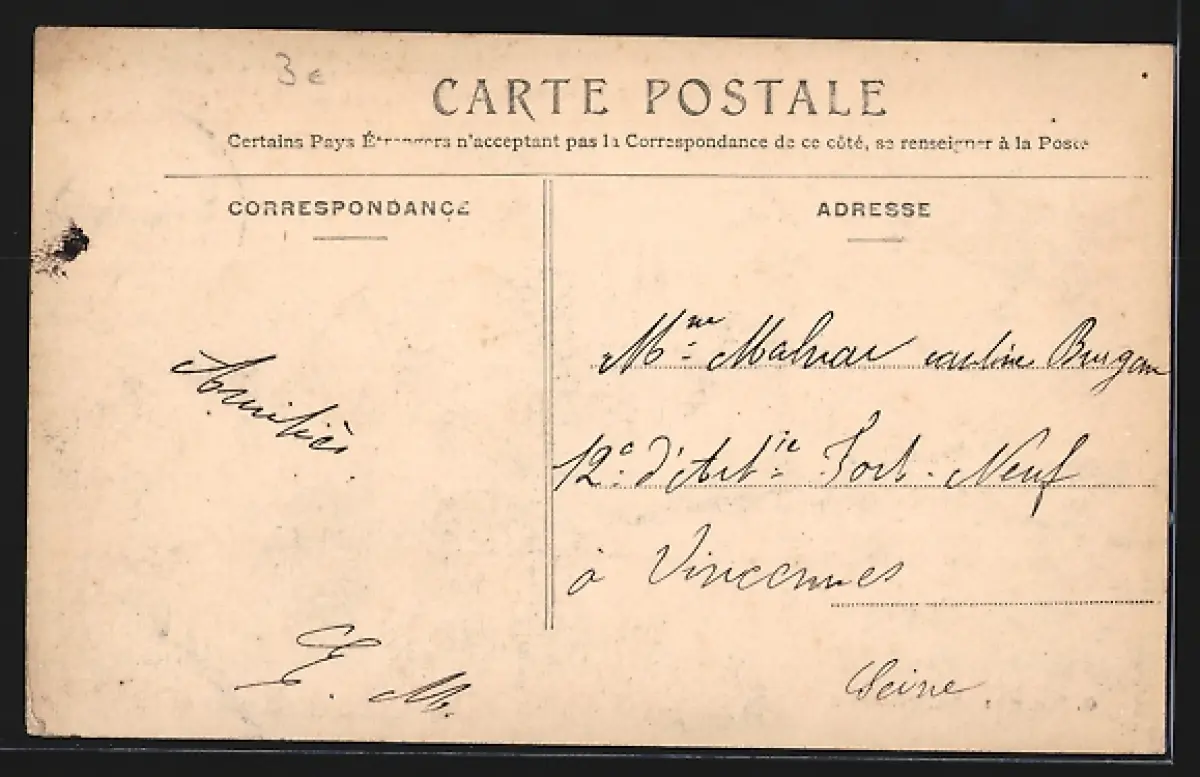 3e
CARTE POSTALE
Certains Pays Étrangers n'acceptant pas la Correspondance de ce côté, se renseigner à la Poste
CORRESPONDANCE
ADRESSE
Amitiés
E. M.
Mme
12e d'Artie Fort-Neuf
à Vincennes
Seine